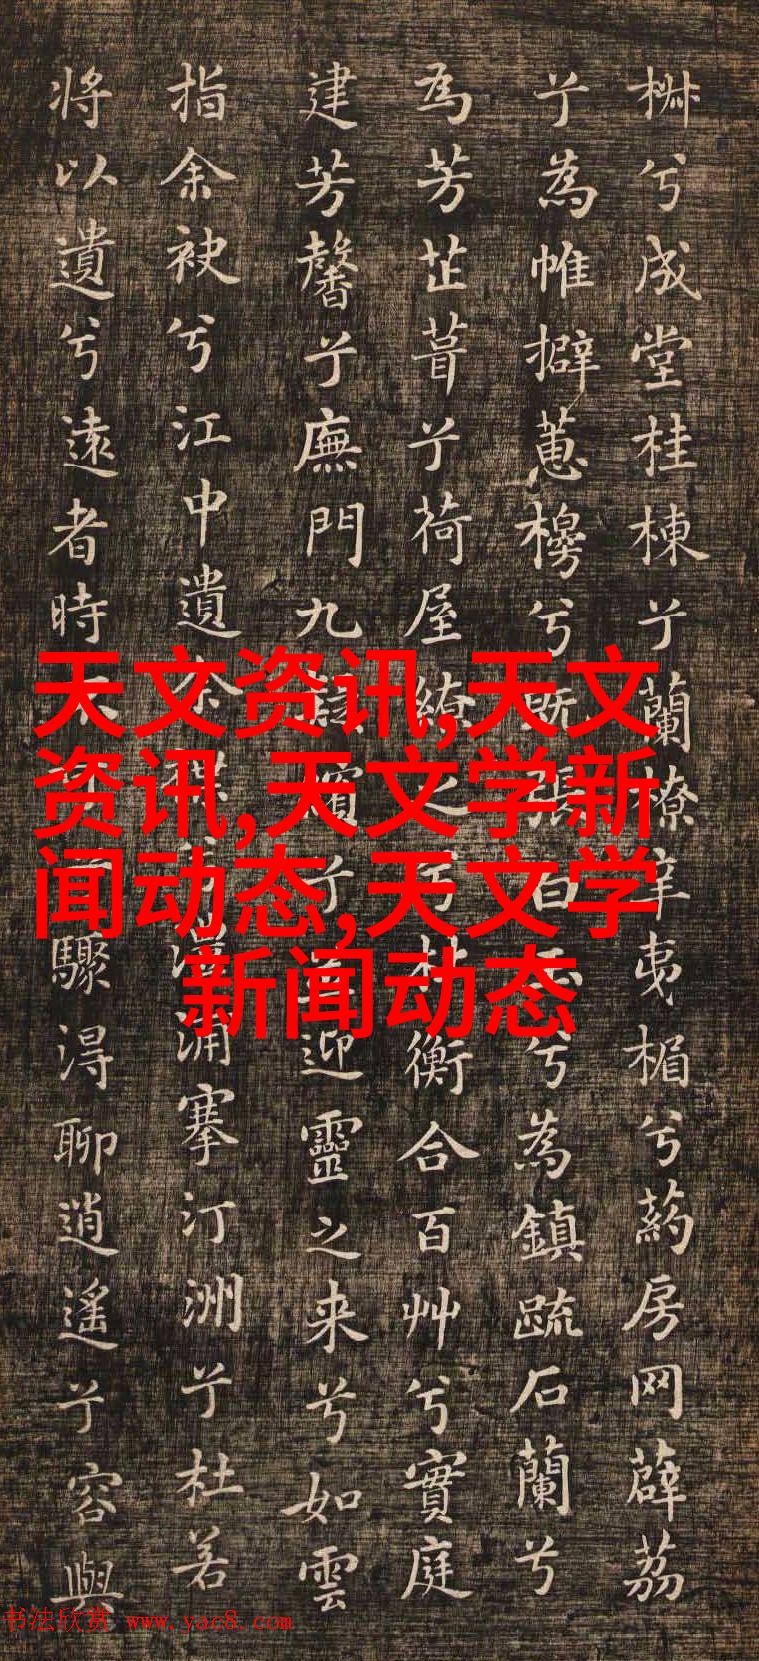 椒兮成堂桂棟兮蘭橑辛夷楣兮葯房网薜荔
兮為帷擗蕙櫋兮既張白玉兮為鎮疏石蘭兮
為芳芷葺兮荷屋繚之兮杜衡合百艸兮實庭
建芳馨兮廡門九疑繽兮並迎靈之来兮如雲
指余袂兮江中遺余褋兮澧浦搴汀洲兮杜若
将以遺兮遠者時不可兮驟得聊逍遙兮容與
天文资讯,天文
资讯,天文学新
闻动态,天文学
新闻动态
书法欣赏 www.yac8.com